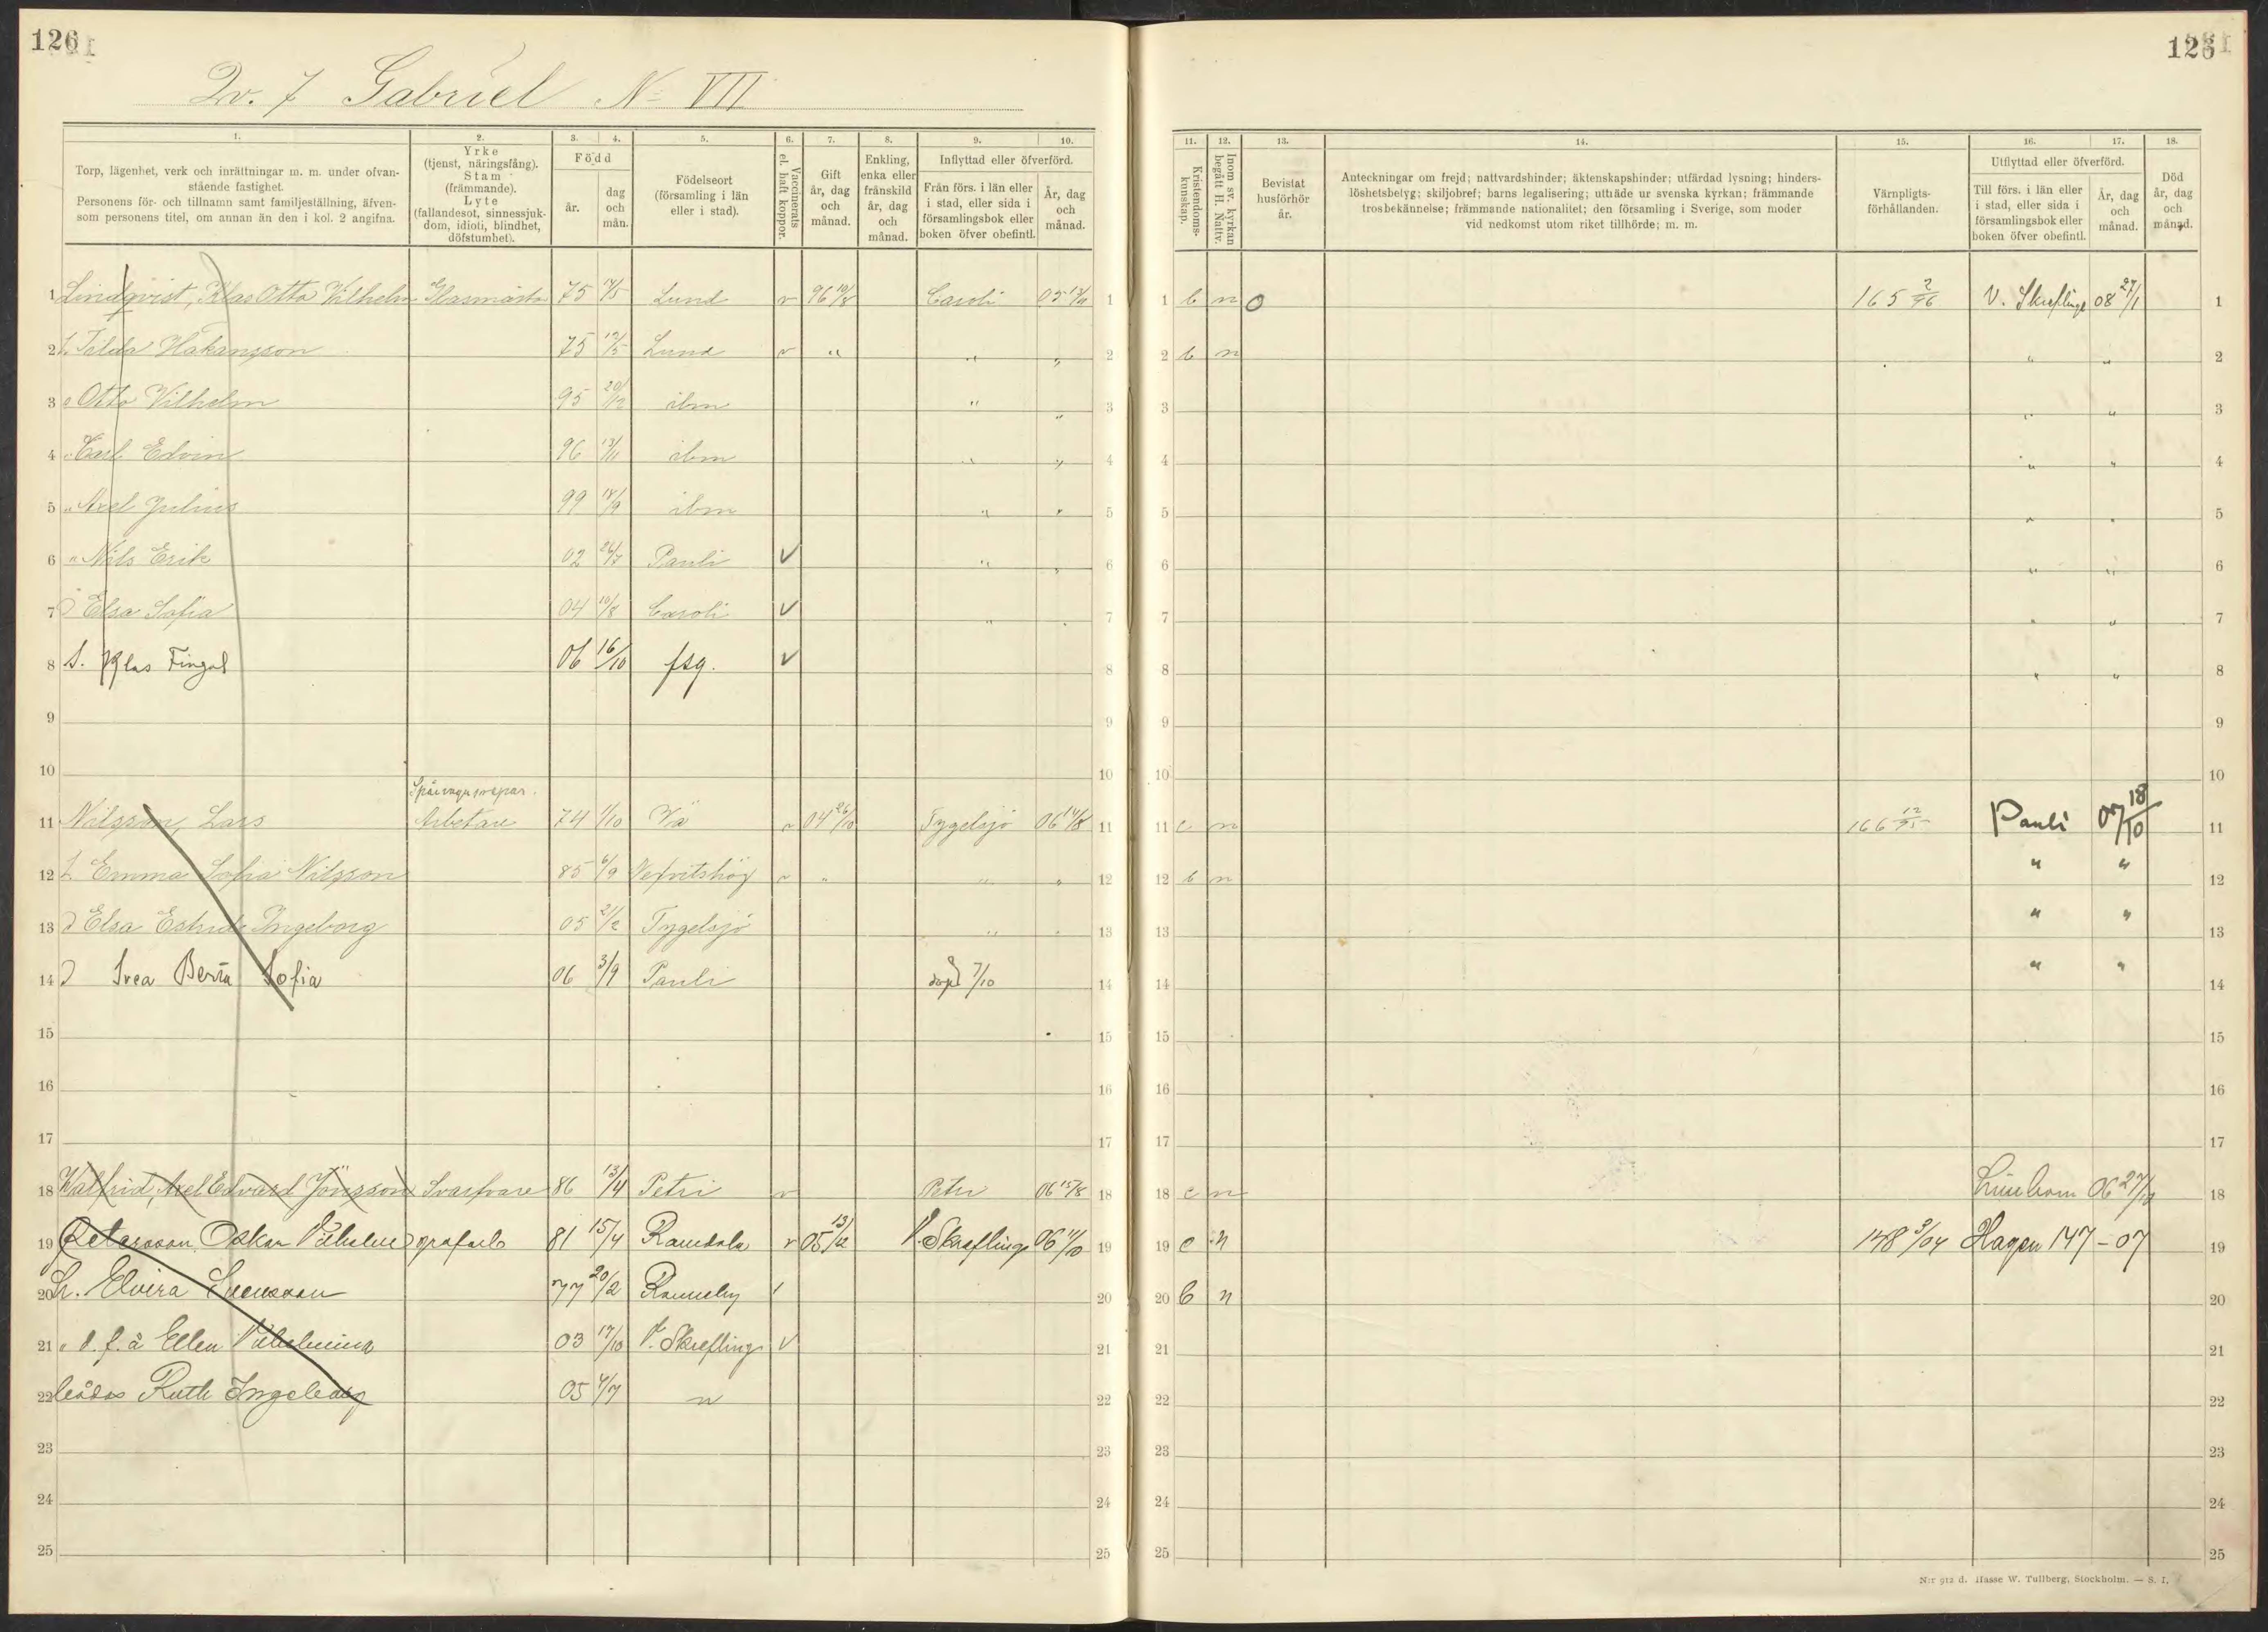 126
Qv. 7 Gabriel No VII
1. 2. 3. 4. 5. 6. 7. 8. 9. 10.
Torp, lägenhet, verk och inrättningar m. m. under ofvan-
stående fastighet.
Personens för- och tillnamn samt familjeställning, äfven-
som personens titel, om annan än den i kol. 2 angifna.
Yrke
(tjenst, näringsfång).
Stam
(främmande).
Lyte
(fallandesot, sinnessjuk-
dom, idioti, blindhet,
döfstumhet).
Född
år.
dag
och
mån.
Födelseort
(församling i län
eller i stad).
Vaccinerats
el. haft koppor.
Gift
år, dag
och
månad.
Enkling,
enka eller
frånskild
år, dag
och
månad.
Inflyttad eller öfverförd.
Från förs. i län eller
i stad, eller sida i
församlingsbok eller
boken öfver obefintl.
År, dag
och
månad.
1 Lindqvist, Klas Otto Vilhelm Glasmäst. 75 Lund v 96 10/8 Caroli 05 1
2 h. Tilda Håkansson 75 12/5 Lund v " " " 2
3 s Otto Vilhelm 95 20/12 ibm " " 3
4 " Carl Edvin 96 13/11 ibm " " 4
5 " Axel Julius 99 18/9 ibm " " 5
6 " Nils Erik 02 26/7 Pauli v " " 6
7 D Elsa Sofia 04 10/8 Caroli v " " 7
8 S. Klas Fingal 06 16/10 fsg. v 8
9 9
10 10
Spårvagnsrepar.
11 Nilsson, Lars Arbetare 74 1/10 Vä v 04 26/10 Tygelsjö 06 14/8 11
12 h Emma Sofia Nilsson 85 6/9 Vefvitshög v " " " 12
13 D Elsa Estrid Ingeborg 05 21/2 Tygelsjö " " 13
14 D Svea Berta Sofia 06 3/9 Pauli döpt 7/10 14
15 15
16 16
17 17
18 Walfrid, Axel Edvard Jönsson Svarfvare 86 13/4 Petri v Petri 06 15/8 18
19 Petersson Oskar Vilhelm grofarb 81 15/4 Ramdala v 05 13/12 V. Skreflinge 06 11/10 19
20 h. Elvira Svensson 77 20/2 Ronneby 20
21 " d. f. ä Ellen Vilhelmina 03 17/10 V. Skreflinge v 21
22 Ruth Ingeborg 05 4/7 " 22
23 23
24 24
25 25
11. 12. 13. 14. 15. 16. 17. 18.
Kristendoms-
kunskap.
Inom sv. kyrkan
begått H. Nattv.
Bevistat
husförhör
år.
Anteckningar om frejd; nattvardshinder; äktenskapshinder; utfärdad lysning; hinders-
löshetsbetyg; skiljobref; barns legalisering; utträde ur svenska kyrkan; främmande
trosbekännelse; främmande nationalitet; den församling i Sverige, som moder
vid nedkomst utom riket tillhörde; m. m.
Värnpligts-
förhållanden.
Utflyttad eller öfverförd.
Till förs. i län eller
i stad, eller sida i
församlingsbok eller
boken öfver obefintl.
År, dag
och
månad.
Död
år, dag
och
månad.
1 b n O 165 2/96 V. Skreflinge 08 27/1 1
2 b n " " 2
3 " " 3
4 " " 4
5 " " 5
6 " " 6
7 " " 7
8 " " 8
9 9
10 10
11 c n 166 12/95 Pauli 07 18/10 11
12 b n " " 12
13 " " 13
14 " " 14
15 15
16 16
17 17
18 c n Limhamn 06 27/10 18
19 c n 148 9/04 Hagen 147 - 07 19
20 b n 20
21 21
22 22
23 23
24 24
25 25
N:r 912 d. Hasse W. Tullberg, Stockholm. — S. I.